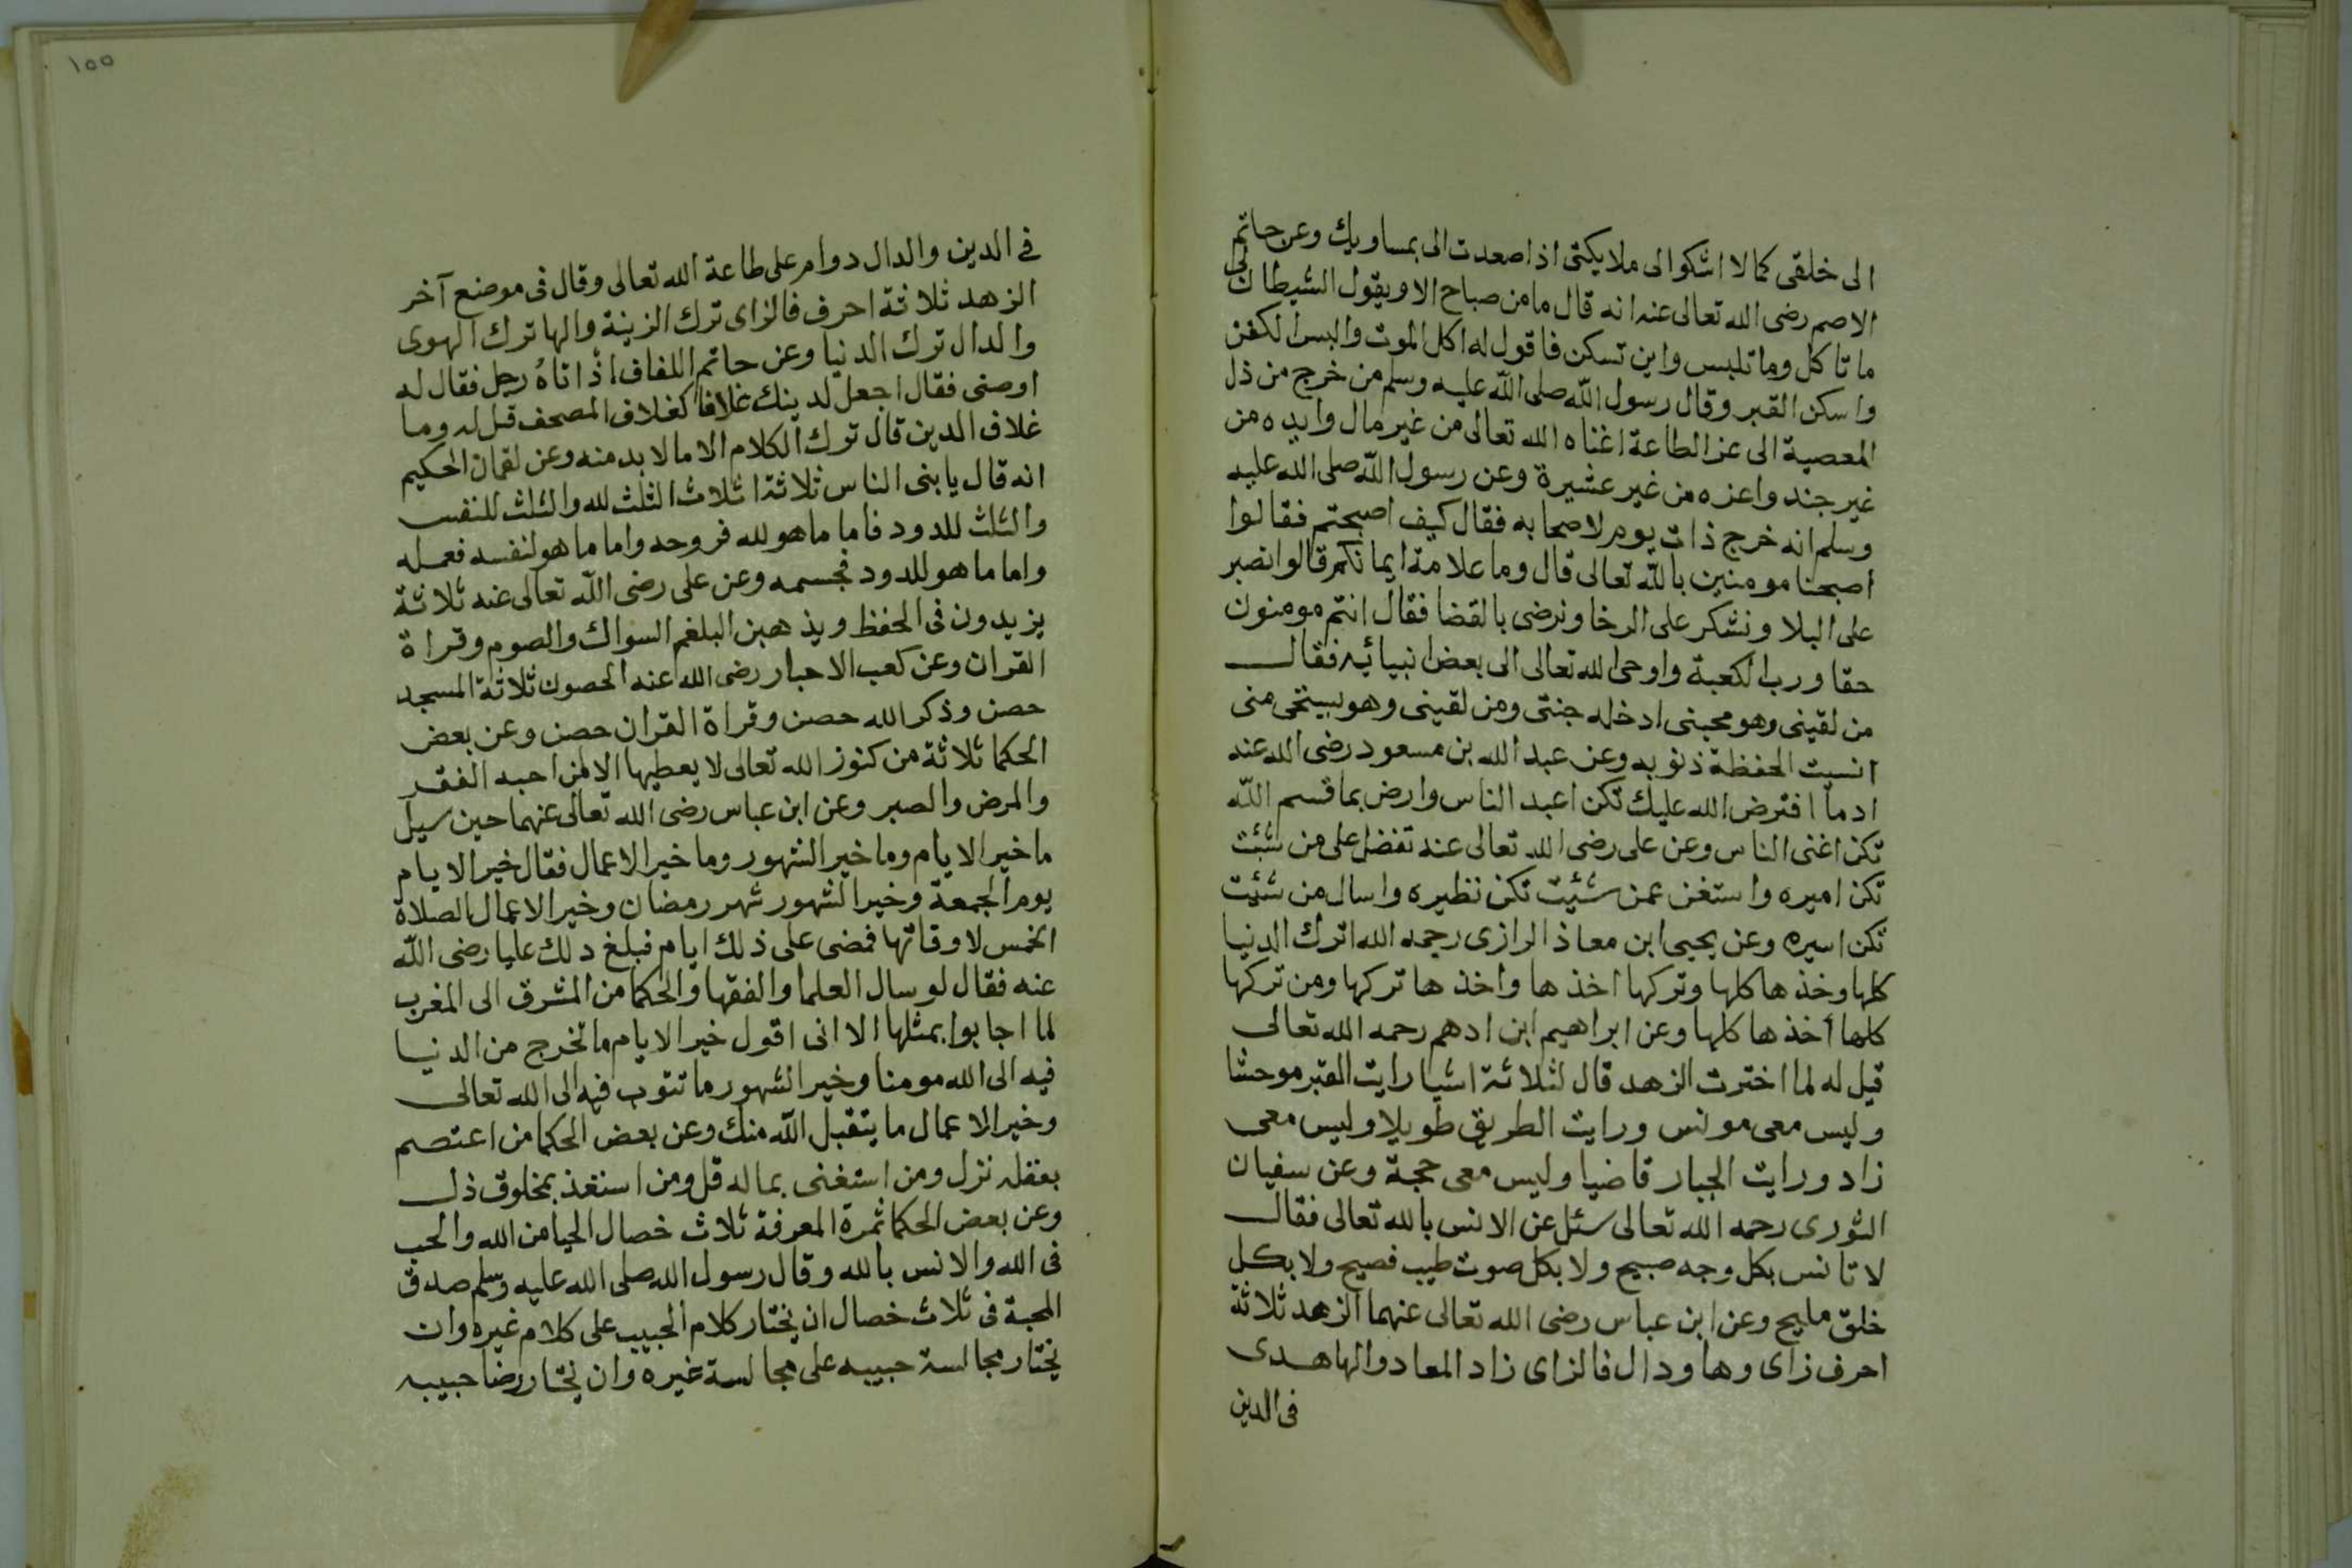 الى خلقى كما لا اشكوا الى ملايكتى اذا صعدت الى بمساويك وعن حاتم
الاصم رضى الله تعالى عنه انه قال ما من صباح الا ويقول الشيطان لى
ما تاكل وما تلبس واين تسكن فاقول له اكل الموت والبس الكفن
واسكن القبر وقال رسول الله صلى الله عليه وسلم من خرج من ذل
المعصية الى عز الطاعة اغناه الله تعالى من غير مال وايده من
غير جند واعزه من غير عشيرة وعن رسول الله صلى الله عليه
وسلم انه خرج ذات يوم لاصحابه فقال كيف اصبحتم فقالوا
اصبحنا مومنين بالله تعالى قال وما علامة ايمانكم قالوا نصبر
على البلا ونشكر على الرخا ونرضى بالقضا فقال انتم مومنون
حقا ورب الكعبة واوحى الله تعالى الى بعض انبيائه فقال
من لقينى وهو محبنى ادخله جنتى ومن لقينى وهو يستحى منى
انسيت الحفظة ذنوبه وعن عبد الله بن مسعود رضى الله عنه
اد ما افترض الله عليك تكن اعبد الناس وارض بما قسم الله
تكن اغنى الناس وعن على رضى الله تعالى عنه تفضل على من شئت
تكن اميره واستغن عمن شئيت تكن نظيره واسال من شئيت
تكن اسيره وعن يحيى ابن معاذ الرازى رحمه الله اترك الدنيا
كلها وخذها كلها وتركها اخذها واخذها تركها ومن تركها
كلها أخذها كلها وعن ابراهيم ابن ادهم رحمه الله تعالى
قيل له لما اخترت الزهد قال لثلاثة اشيا رايت القبر موحشا
وليس معى مونس ورايت الطريق طويلا وليس معى
زاد ورايت الجبار قاضيا وليس معى حجة وعن سفيان
الثورى رحمه الله تعالى سئل عن الانس بالله تعالى فقال
لا تانس بكل وجه صبيح ولا بكل صوت طيب فصيح ولا بكل
خلق مليح وعن ابن عباس رضى الله تعالى عنهما الزهد ثلاثة
احرف زاى وها ودال فالزاى زاد المعاد والها هدى
فى الدين
١٥٥
فى الدين والدال دوام على طاعة الله تعالى وقال فى موضع آخر
الزهد ثلاثة احرف فالزاى ترك الزينة والها ترك الهوى
والدال ترك الدنيا وعن حاتم اللفاف اذا تاهُ رجل فقال له
اوصنى فقال اجعل لدينك غلافا كغلاف المصحف قيل له وما
غلاف الدين قال ترك الكلام الا ما لا بد منه وعن لقمان الحكيم
انه قال يا بنى الناس ثلاثة اثلاث الثلث لله والثلث للنفس
والثلث للدود فاما ما هو لله فروحه واما ما هو لنفسه فعمله
واما ما هو للدود فجسمه وعن على رضى الله تعالى عنه ثلاثة
يزيدون فى الحفظ ويذهبن البلغم السواك والصوم وقراة
القران وعن كعب الاحبار رضى الله عنه الحصون ثلاثة المسجد
حصن وذكر الله حصن وقراة القران حصن وعن بعض
الحكما ثلاثة من كنوز الله تعالى لا يعطيها الا لمن احبه الفقر
والمرض والصبر وعن ابن عباس رضى الله تعالى عنهما حين سيل
ما خير الايام وما خير الشهور وما خير الاعمال فقال خير الايام
يوم الجمعة وخير الشهور شهر رمضان وخير الاعمال الصلاة
الخمس لاوقاتها فمضى على ذلك ايام فبلغ ذلك عليا رضى الله
عنه فقال لو سال العلما والفقها والحكما من المشرق الى المغرب
لما اجابوا بمثلها الا انى اقول خير الايام ما تخرج من الدنيا
فيه الى الله مومنا وخير الشهور ما تتوب فيه الى الله تعالى
وخير الاعمال ما يتقبل الله منك وعن بعض الحكما من اعتصم
بعقله نزل ومن استغنى بماله قل ومن استغذ بمخلوق ذل
وعن بعض الحكما ثمرة المعرفة ثلاث خصال الحيا من الله والحب
فى الله والانس بالله وقال رسول الله صلى الله عليه وسلم صدق
المحبة فى ثلاث خصال ان يختار كلام الحبيب على كلام غيره وان
يختار مجالسة حبيبه على مجالسة غيره وان يختار رضا حبيبه